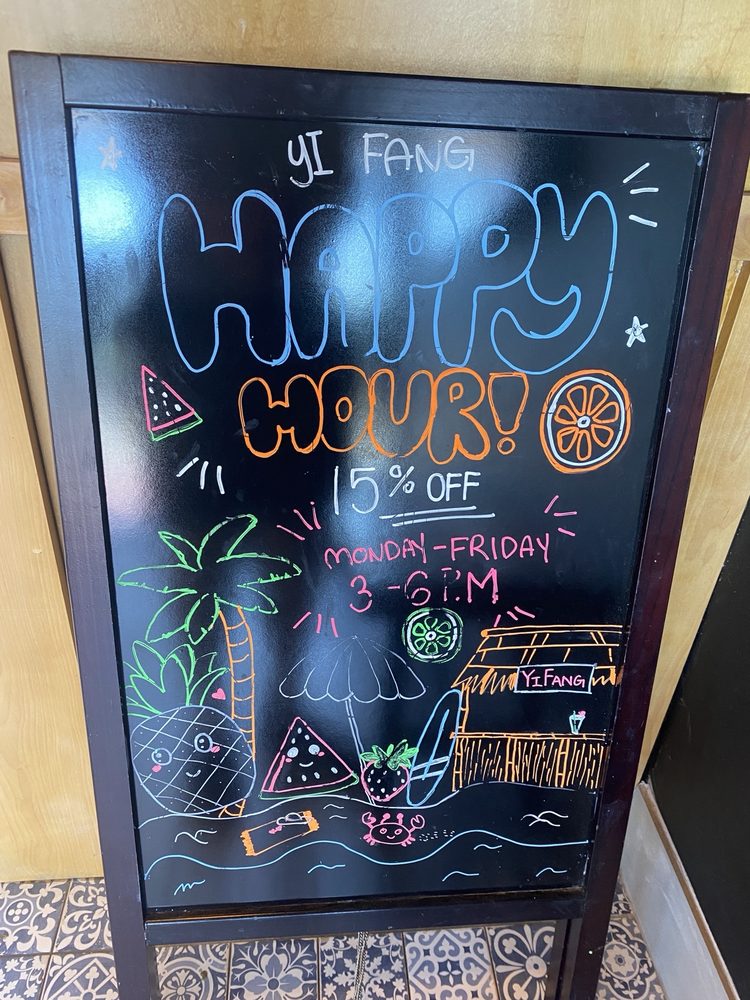 YI FANG
HAPPY
HOUR!
15% OFF
MONDAY-FRIDAY
3-6 P.M
YIFANG